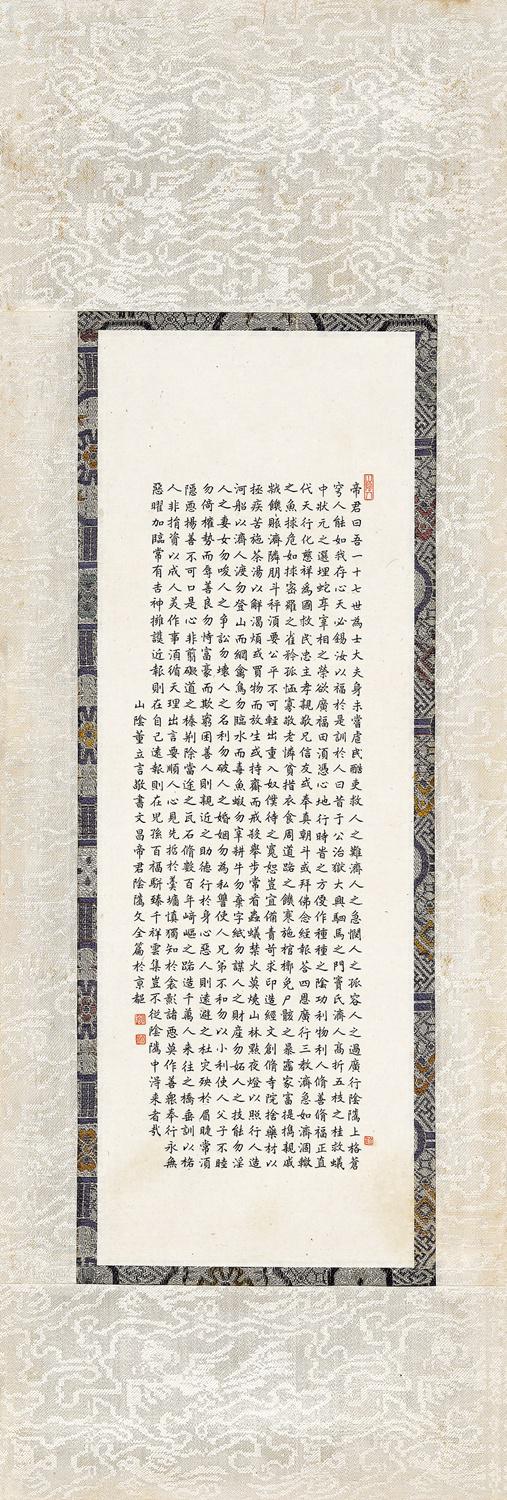 帝君曰吾一十七世為士大夫身未嘗虐民酷吏救人之難濟人之急憫人之孤容人之過廣行陰隲上格蒼
穹人能如我存心天必錫汝以福於是訓於人曰昔于公治獄大興駟馬之門竇氏濟人高折五枝之桂救蟻
中狀元之選埋蛇享宰相之榮欲廣福田須憑心地行時時之方便作種種之陰功利物利人脩善脩福正直
代天行化慈祥為國救民忠主孝親敬兄信友或奉真朝斗或拜佛念經報答四恩廣行三教濟急如濟涸轍
之魚救危如救密羅之雀矜孤恤寡敬老憐貧措衣食周道路之饑寒施棺槨免尸骸之暴露家富提攜親戚
歲饑賑濟隣朋斗秤須要公平不可輕出重入奴僕待之寬恕豈宜備責苛求印造經文創脩寺院捨藥材以
拯疾苦施茶湯以解渴煩或買物而放生或持齋而戒殺舉步常看蟲蟻禁火莫燒山林點夜燈以照行人造
河船以濟人渡勿登山而網禽鳥勿臨水而毒魚蝦勿宰耕牛勿棄字紙勿謀人之財產勿妒人之技能勿淫
人之妻女勿唆人之爭訟勿壞人之名利勿破人之婚姻勿為私讐使人兄弟不和勿以小利使人父子不睦
勿倚權勢而辱善良勿恃富豪而欺窮困善人則親近之助德行於身心惡人則遠避之杜災殃於眉睫常須
隱惡揚善不可口是心非翦礙道之榛荆除當途之瓦石脩數百年崎嶇之路造千萬人來往之橋垂訓以格
人非捐資以成人美作事須循天理出言要順人心見先哲於羹墻慎獨知於衾影諸惡莫作善衆奉行永無
惡曜加臨常有吉神擁護近報則在自己遠報則在兒孫百福駢臻千祥雲集豈不從陰隲中得來者哉
山陰董立言敬書文昌帝君陰隲文全篇於京